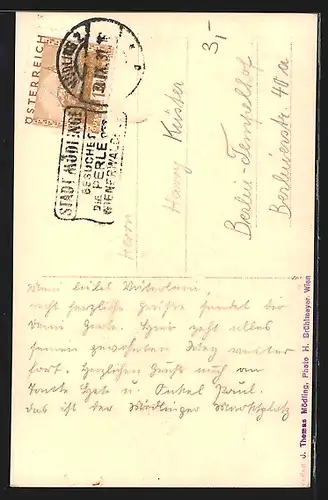 ÖSTERREICH
MÖDLING 2
STADT MÖDLING
BESUCHET
DIE PERLE DES
WIENERWALDES
3,-
Herrn
Harry Küster
Berlin-Tempelhof
Berlinerstr. 40a
Mein liebes
recht herzliche Grüße sendet dir
deine Grete. Hier geht alles
seinen gewohnten Weg weiter
fort. Herzlichen Gruß auch an
Tante u. Onkel Paul.
das ist der Mödlinger Marktplatz
J. Thomas Mödling, Photo H. Brühlmeyer, Wien